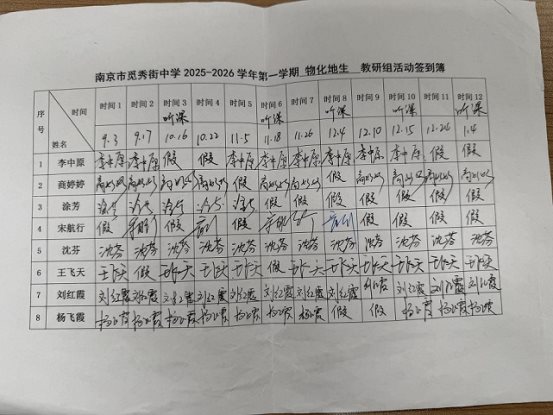 南京市觅秀街中学 2025-2026 学年第一学期 物化地生 教研组活动签到簿
序号 时间 姓名 时间 1 时间 2 时间 3 时间 4 时间 5 时间 6 时间 7 时间 8 时间 9 时间 10 时间 11 时间 12
听课 听课 听课 听课 听课
9.3 9.17 10.16 10.22 11.5 11.18 11.26 12.4 12.10 12.15 12.26 1.4
1 李中原 李中原 李中原 假 假 李中原 李中原 李中原 李中原 李中原 李中原 假 假
2 商婷婷 假 假
3 涂芳 假 假 假 假 假 假 假
4 宋航行 假 假 假 假 假 假
5 沈芬 沈芬 沈芬 沈芬 沈芬 沈芬 沈芬 沈芬 沈芬 沈芬 沈芬 沈芬 沈芬
6 王飞天 王飞天 假 王飞天 王飞天 王飞天 假 王飞天 王飞天 王飞天 王飞天 王飞天 王飞天
7 刘红霞 刘红霞 刘红霞 刘红霞 刘红霞 刘红霞 刘红霞 刘红霞 刘红霞 刘红霞 刘红霞 刘红霞
8 杨飞霞 杨飞霞 杨飞霞 杨飞霞 杨飞霞 杨飞霞 杨飞霞 杨飞霞 假 假 杨飞霞 杨飞霞 杨飞霞